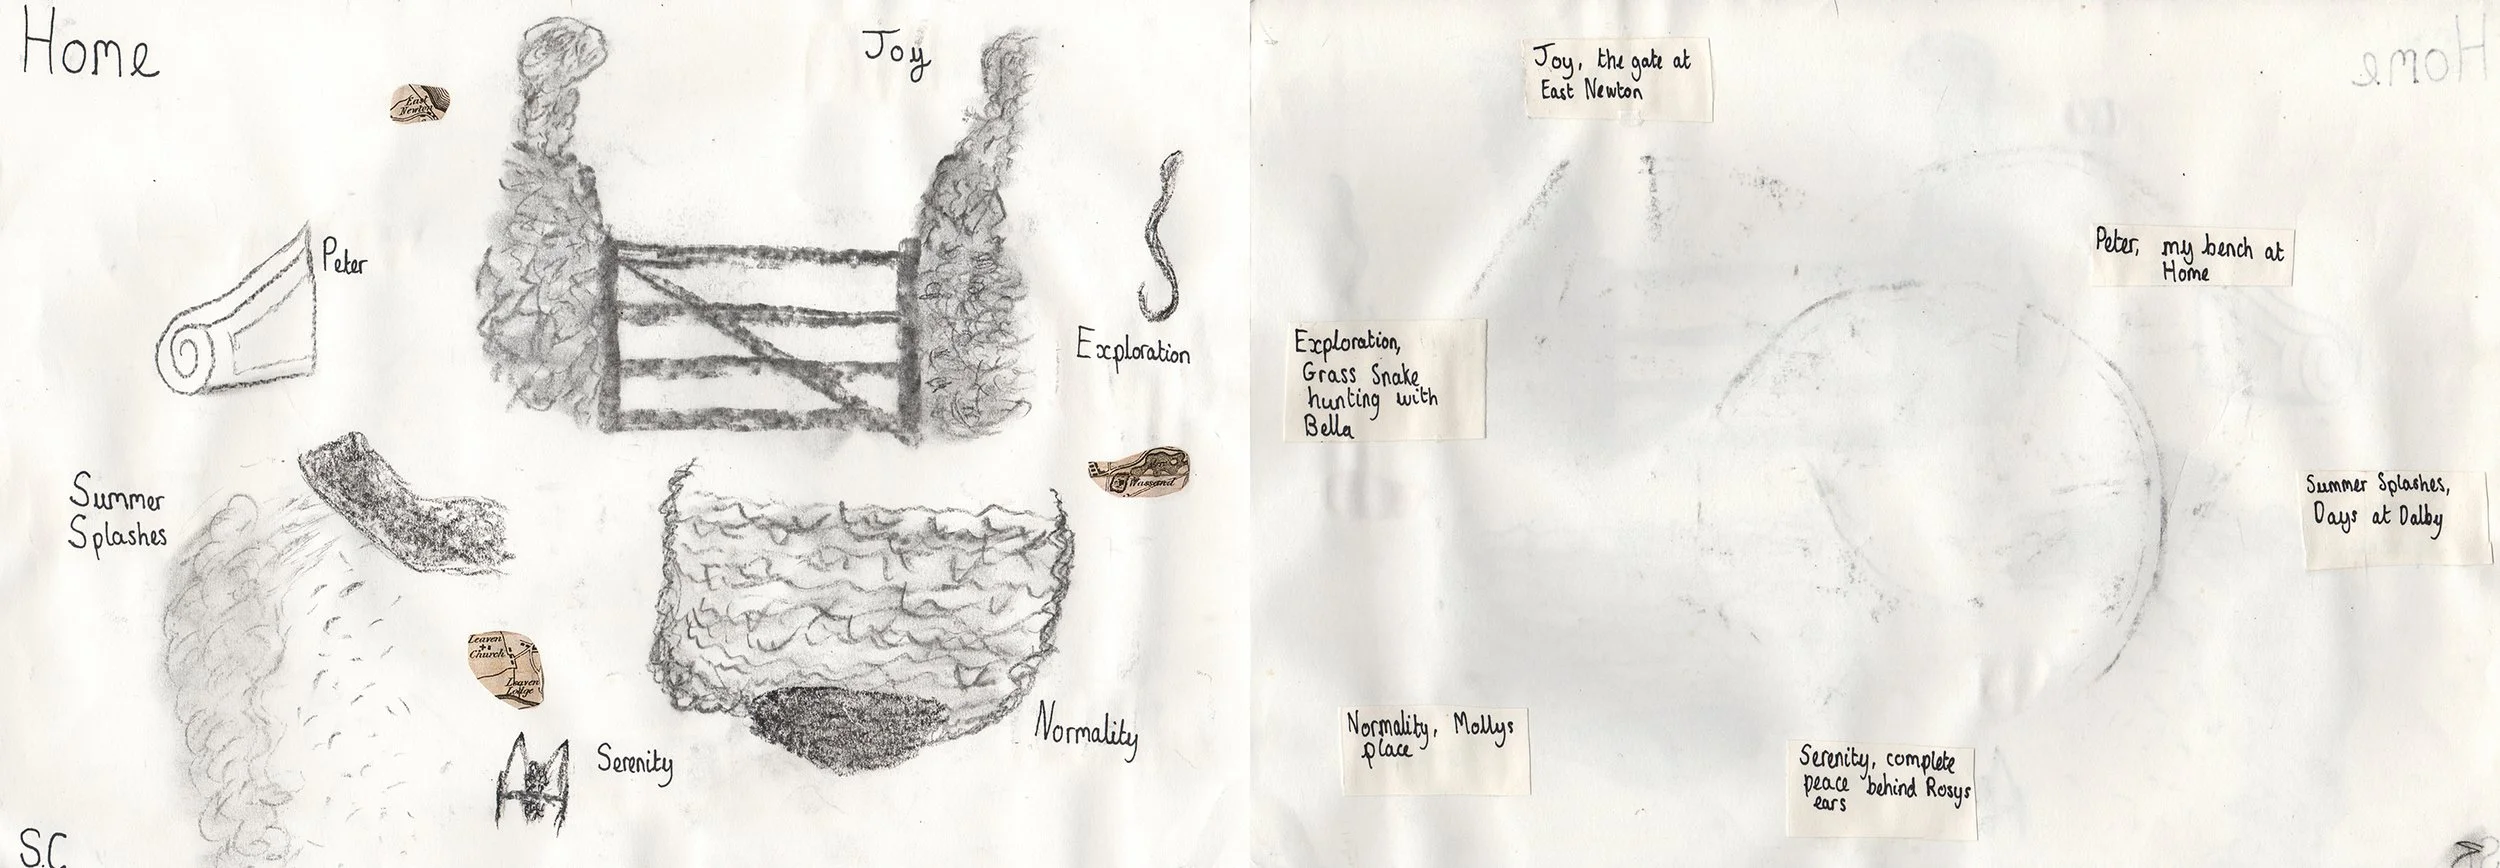 Home
Joy
East
Newton
Peter
Exploration
Summer
Splashes
Wassand
Leaven
Church
Leaven
Lodge
Normality
Serenity
S.C
Joy, the gate at
East Newton
Home
Peter, my bench at
Home
Exploration,
Grass Snake
hunting with
Bella
Summer Splashes,
Days at Dalby
Normality, Mollys
place
Serenity, complete
peace behind Rosys
ears